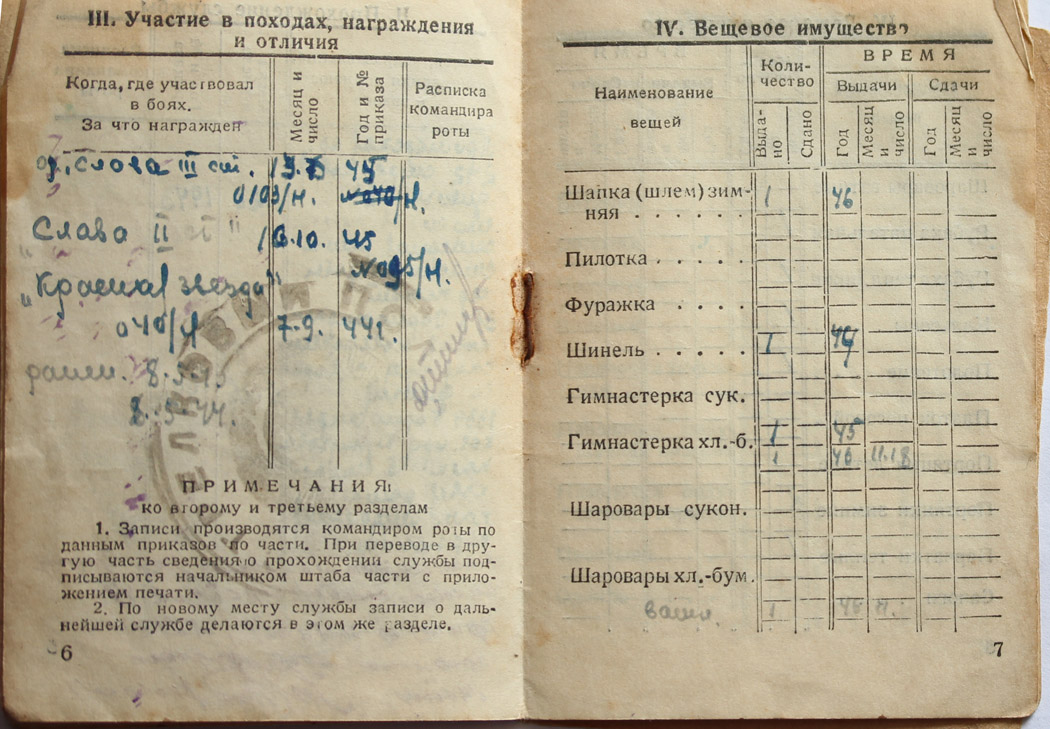 III. Участие в походах, награждения
и отличия
Когда, где участвовал
в боях.
За что награжден
Месяц и
число
Год и №
приказа
Расписка
командира
роты
ор. Слава III ст. 45
0103/н.
Слава II 16.10. 45
№ 095/н.
"Красная звезда"
046/н 7.9. 44г.
8.5.44.
ПРИМЕЧАНИЯ
ко второму и третьему разделам
1. Записи производятся командиром роты по
данным приказов по части. При переводе в дру-
гую часть сведения о прохождении службы под-
писываются начальником штаба части с прило-
жением печати.
2. По новому месту службы записи о даль-
нейшей службе делаются в этом же разделе.
6
IV. Вещевое имущество
Наименование
вещей
Коли-
чество
ВРЕМЯ
Выдачи
Сдачи
Выда-
но
Сдано
Год
Месяц
и
число
Год
Месяц
и
число
Шапка (шлем) зим-
няя . . . . . . 1 46
Пилотка . . . . .
Фуражка . . . .
Шинель . . . . . 1
Гимнастерка сук.
Гимнастерка хл.-б. 1 45
1 46 11.18
Шаровары сукон.
Шаровары хл.-бум.
1 46
7